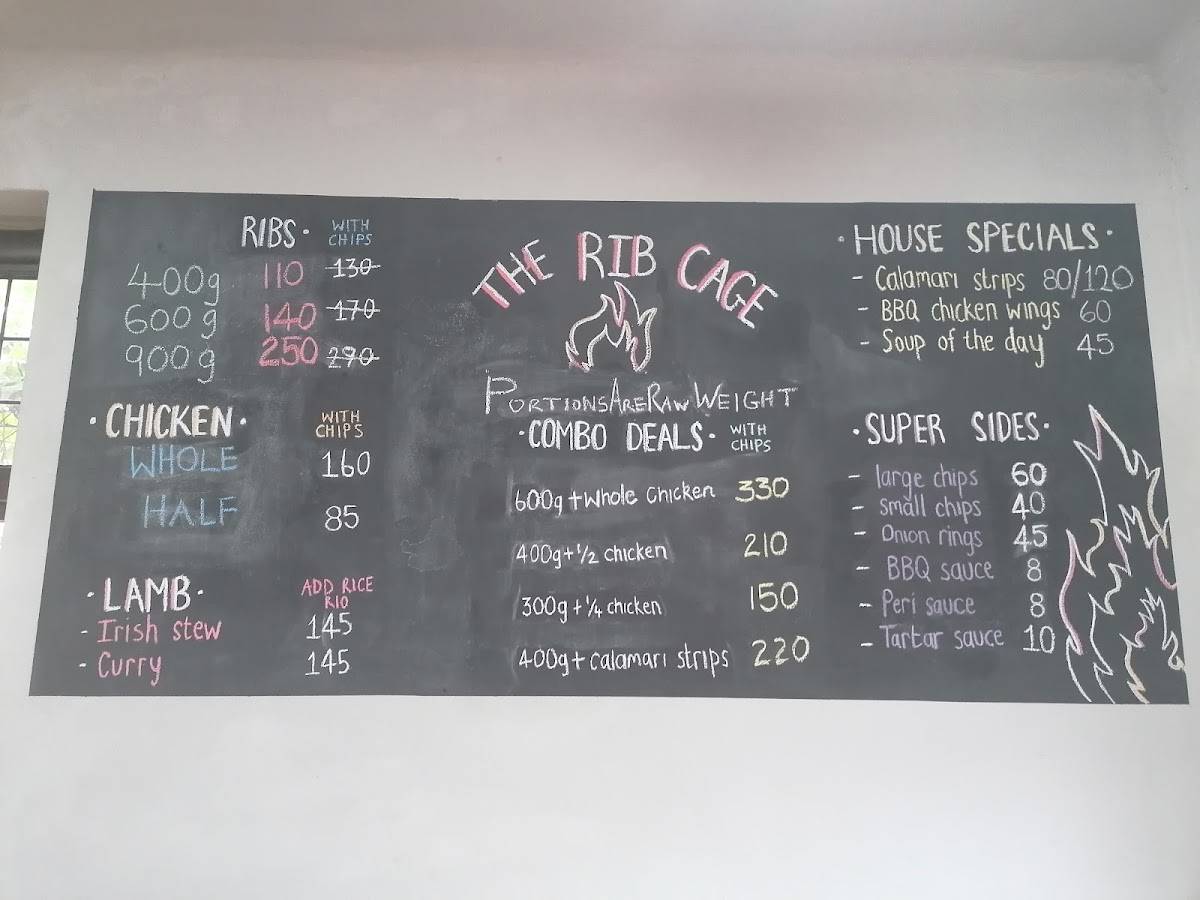 RIBS · WITH CHIPS
400g 110 130
600g 140 170
900g 250 290
· CHICKEN · WITH CHIPS
WHOLE 160
HALF 85
· LAMB · ADD RICE R10
- Irish stew 145
- Curry 145
THE RIB CAGE
PORTIONS ARE RAW WEIGHT
· COMBO DEALS · WITH CHIPS
600g + whole chicken 330
400g + 1/2 chicken 210
300g + 1/4 chicken 150
400g + calamari strips 220
· HOUSE SPECIALS ·
- Calamari strips 80/120
- BBQ chicken wings 60
- Soup of the day 45
· SUPER SIDES ·
- large chips 60
- small chips 40
- Onion rings 45
- BBQ sauce 8
- Peri sauce 8
- Tartar sauce 10